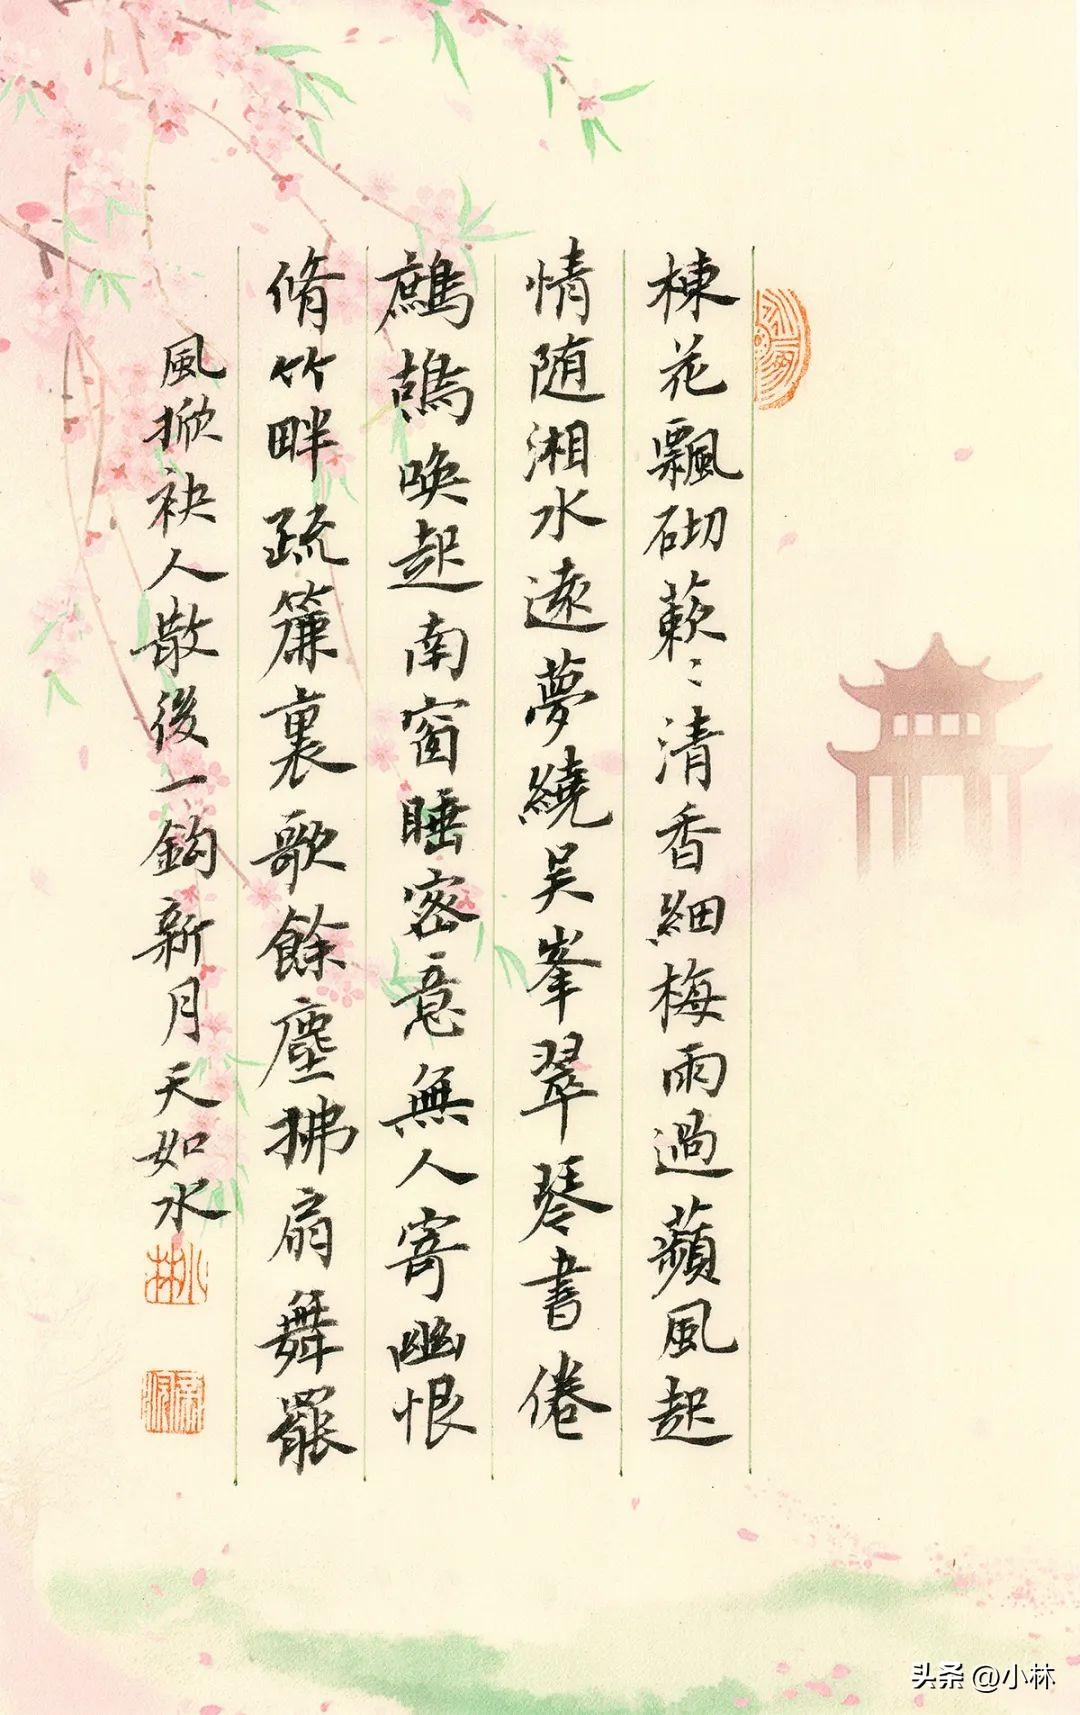 楝花飄砌蔌〻清香細梅雨過蘋風起
情随湘水遠夢繞吴峯翠琴書倦
鷓鴣喚起南窗睡密意無人寄幽恨
脩竹畔疏簾裏歌餘塵拂扇舞罷
風掀袂人散後一鈎新月天如水
小林
头条 @小林